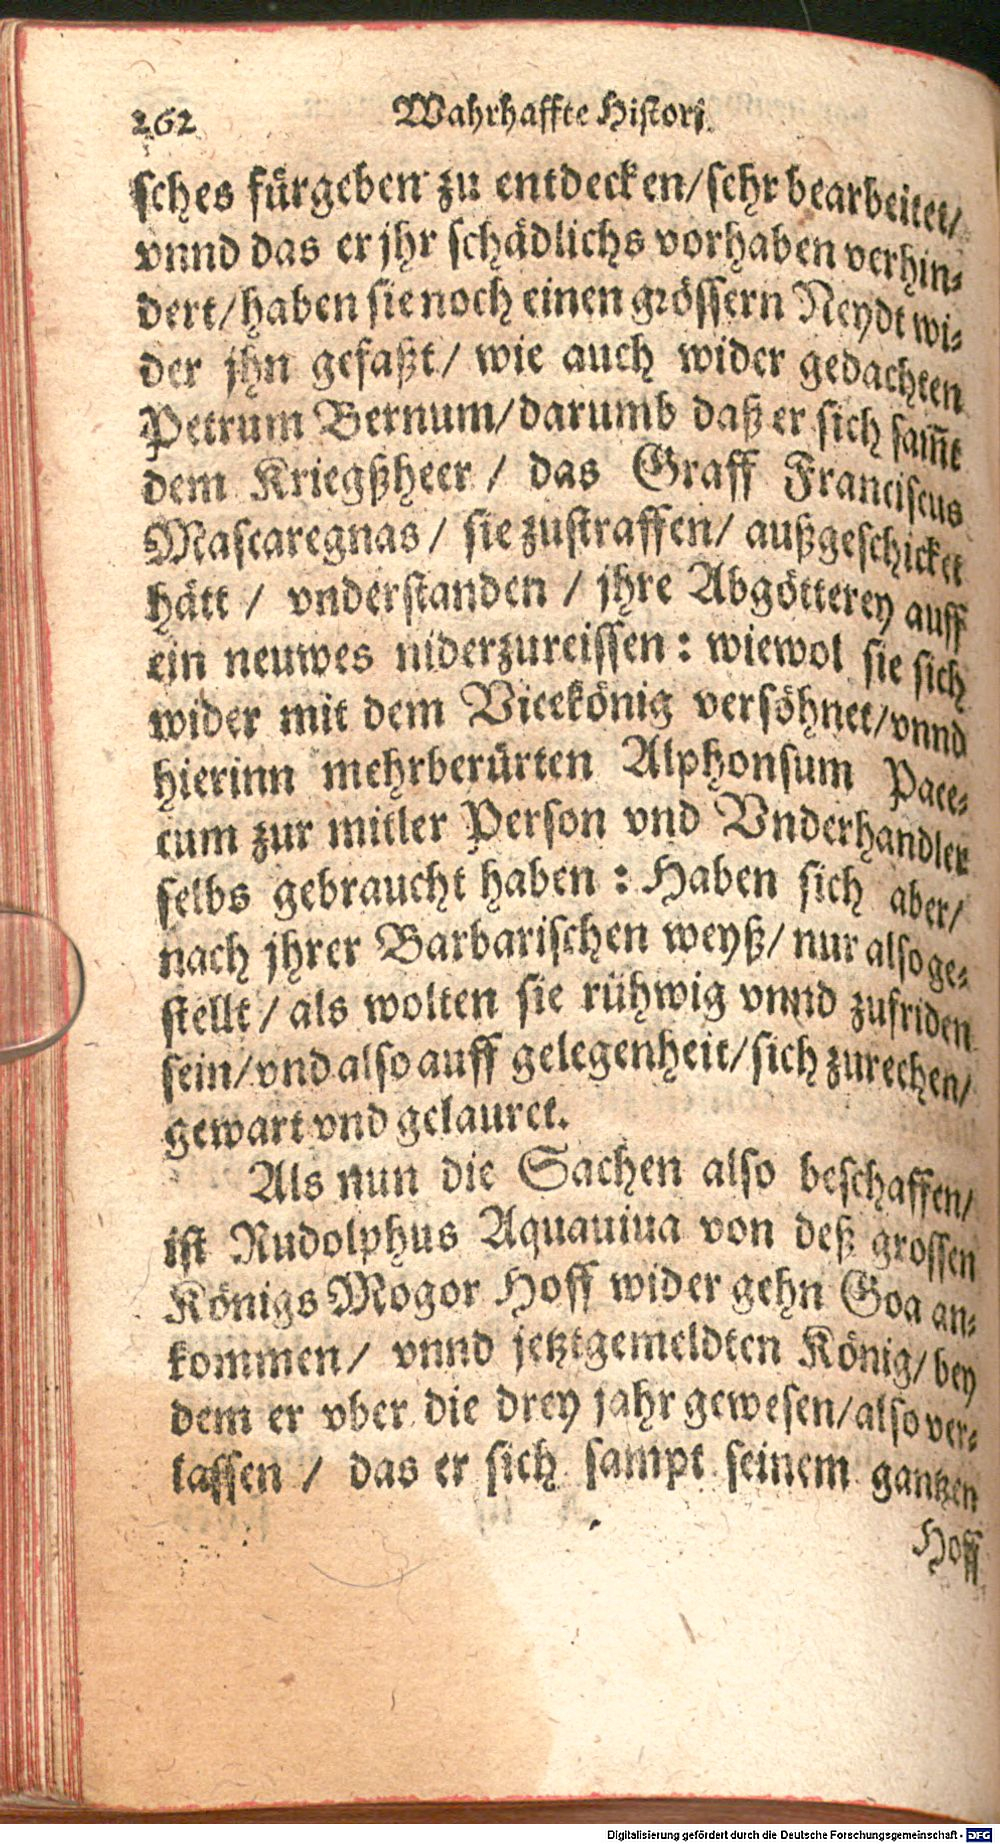 262 Wahrhaffte Histori.
sches fürgeben zu entdecken/ sehr bearbeitet/
vnnd das er jhr schädlichs vorhaben verhin-
dert/ haben sie noch einen grössern Neydt wi-
der jhn gefaßt/ wie auch wider gedachten
Petrum Bernum/ darumb daß er sich sam̃t
dem Kriegßheer / das Graff Franciscus
Mascaregnas / sie zustraffen/ außgeschicket
hätt / vnderstanden / jhre Abgötterey auff
ein neuwes niderzureissen : wiewol sie sich
wider mit dem Vicekönig versöhnet/ vnnd
hierinn mehrberürten Alphonsum Pace-
cum zur mitler Person vnd Vnderhandler
selbs gebraucht haben : Haben sich aber/
nach jhrer Barbarischen weyß/ nur also ge-
stellt / als wolten sie rühwig vnnd zufriden
sein/ vnd also auff gelegenheit/ sich zurechen/
gewart vnd gelauret.
Als nun die Sachen also beschaffen/
ist Rudolphus Aquauiua von deß grossen
Königs Mogor Hoff wider gehn Goa an-
kommen/ vnnd jetztgemeldten König/ bey
dem er vber die drey jahr gewesen/ also ver-
lassen / das er sich sampt seinem gantzen
Hoff
Digitalisierung gefördert durch die Deutsche Forschungsgemeinschaft - DFG